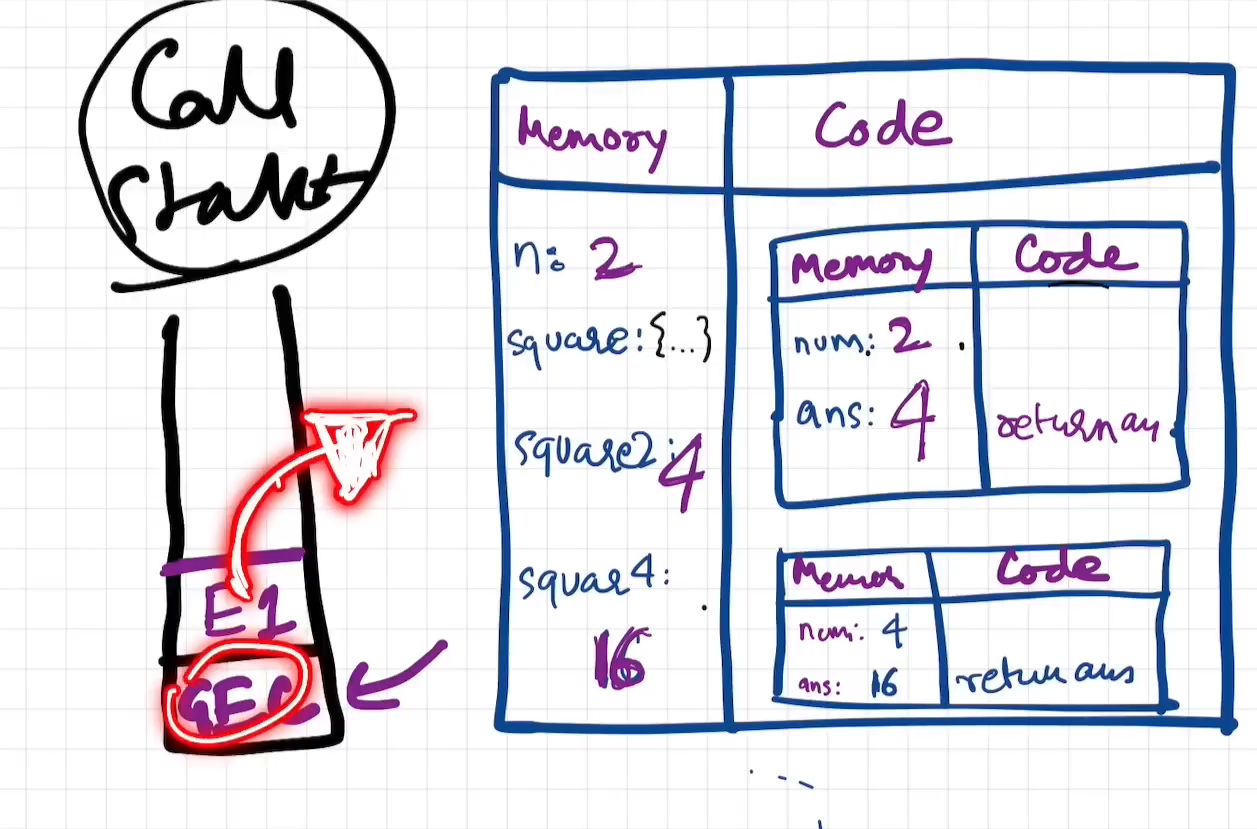 Call
Stak
E1
GEC
Memory
Code
n: 2
square: {...}
square2: 4
squar4:
16
Memory
Code
num: 2
ans: 4
return an
Memor
Code
num: 4
ans: 16
return ans